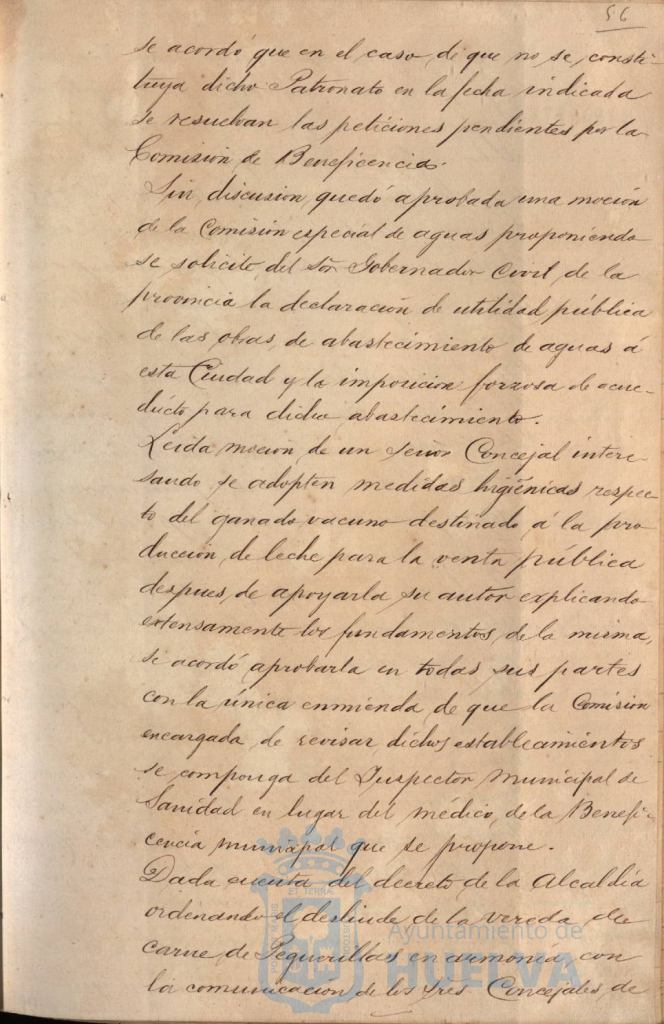 56
se acordó que en el caso de que no se consti-
tuya dicho Patronato en la fecha indicada
se resuelvan las peticiones pendientes por la
Comisión de Beneficencia.
Sin discusion quedó aprobada una moción
de la Comisión especial de aguas proponiendo
se solicite del Sor Gobernador Civil de la
provincia la declaración de utilidad pública
de las obras de abastecimiento de aguas á
esta Ciudad y la imposicion forzosa de acue-
ducto para dicho abastecimiento.
Leida moción de un Señor Concejal intere-
sando se adopten medidas higiénicas respec-
to del ganado vacuno destinado á la pro
ducción de leche para la venta pública
despues de apoyarla su autor explicando
extensamente los fundamentos de la misma,
se acordó aprobarla en todas sus partes
con la única enmienda de que la Comisión
encargada de revisar dichos establecimientos
se componga del Inspector Municipal de
Sanidad en lugar del médico de la Benefi-
cencia municipal que se propone.
Dada cuenta del decreto de la Alcaldía
ordenando el deslinde de la vereda de
carne de Peguerillas en armonía con
la comunicacion de los tres Concejales de
Ayuntamiento de
HUELVA